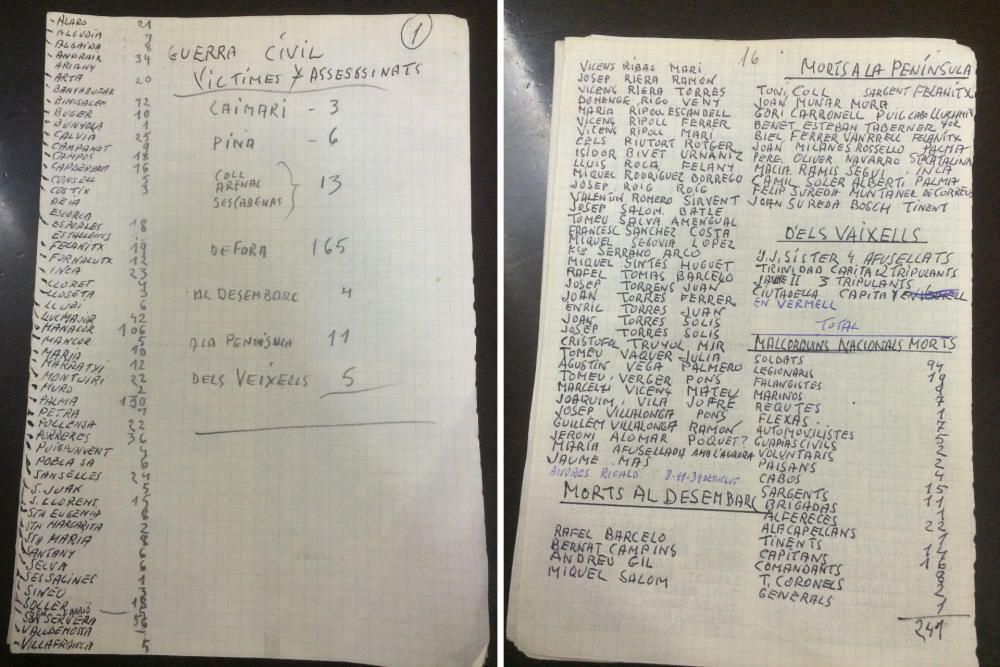 ALARO 21
ALCUDIA 7
ALGAIDA 8
ANDRAIX 34
ARIANY
ARTA 20
BANYABUFAR
BINISALEM 12
BUGER 10
BUNYOLA 1
CALVIA 25
CAMPANET 9
CAMPOS 18
CAPDEPERA 16
CONSELL 5
COSTIX 3
DEIA
ESCORCA
ESPORLES 18
ESTALLENCS
FELANITX
FORNALUTX 12
INCA 23
LLORET
LLOSETA 3
LLUBI 6
LLUCMAJOR 42
MANACOR 106
MANCOR 5
MARIA 10
MARRATXI 12
MONTUIRI 22
MURO 2
PALMA 130
PETRA 7
POLLENSA 22
PORRERES 36
PUIGPUNYENT 4
POBLA SA 6
SANSELLES 24
S. JUAN 5
S. LLORENS 15
STA EUGENIA 8
STA MARGARITA 2
STA MARIA 8
SANTANY 6
SELVA 6
SES SALINES 1
SINEU 3
SOLLER
SON SERVERA 56
VALLDEMOSSA -
VILLAFRANCA 5
1
GUERRA CIVIL
VICTIMES Y ASSESSINATS
CAIMARI - 3
PINA - 6
COLL
ARENAL
SESCADENAS
13
DEFORA 165
AL DESEMBARC 4
A LA PENINSULA 11
DELS VEIXELLS 5
16
VICENS RIBAS MARI
JOSEP RIERA RAMON
VICENS RIERA TORRES
DOMENGE RIGO VENY
MARIA RIPOLL ESCANDELL
VICENS RIPOLL FERRER
VICENS RIPOLL MARI
CELS RIUTORT ROTGER
ISIDOR BIVET URNANIZ
LLUIS ROCA FELANY
MIQUEL RODRIGUEZ BORREGO
JOSEP ROIG ROIG
VALENTIN ROMERO SIRVENT
JOSEP SALOM BATLE
TOMEU SALVA AMENGUAL
FRANCESC SANCHEZ COSTA
MIQUEL SEGOVIA LOPEZ
SERRANO ARCO
MIQUEL SINTES HUGUET
RAFEL TOMAS BARCELO
JOSEP TORRENS JUAN
JOAN TORRES FERRER
ENRIC TORRES JUAN
JOAN TORRES SOLIS
JOSEP TORRES SOLIS
CRISTOFUL TRUYOL MIR
TOMEU VAQUER JULIA
AGUSTIN VEGA PALMERO
TOMEU VERGER PONS
MARCELI VICENS MATEU
JOAQUIM VILA JOFRE
JOSEP VILLALONGA PONS
GUILLEM VILLALONGA RAMON
JERONI ALOMAR POQUET?
MARIA AFUSELLADA AMB L'AURORA
JAUME MAS
ANDRES RICALD 8-11-39
MORTS AL DESEMBARC
RAFEL BARCELO
BERNAT CAMPINS
ANDREU GIL
MIQUEL SALOM
MORTS A LA PENÍNSULA
TONI COLL SARGENT FELANITX
JOAN MUNAR MORA
GORI CARRONELL PUIG CABO LLUCHM
BENET ESTEBAN TABERNER
BIEL FERRER VANRRELL FELANITX
JOAN MILANES ROSSELLO PALMA
PERE OLIVER NAVARRO STA CATALINA
MACIA RAMIS SEGUI INCA
CAMIL SOLER ALBERTI PALMA
FELIP SUREDA MUNTANER DE CORREUS
JOAN SUREDA BOSCH TINENT
DELS VAIXELLS
J.J. SISTER 4 AFUSELLATS
TRINIDAD CAPITA 2 TRIPULANTS
JAUME II 3 TRIPULANTS
CIUTADELLA CAPITA Y
EN VERMELL
TOTAL
MALLORQUINS NACIONALS MORTS
SOLDATS 94
LEGIONARIS 19
FALANGISTES
MARINOS 7
REQUTES 1
FLEXAS 7
AUTOMOVILISTES 5
GUARDIAS CIVILS 2
VOLUNTARIS 2
PAISANS 4
CABOS 15
SARGENTS 11
BRIGADAS 1
ALFERECES 22
ALACAPELLANS 1
TINENTS
CAPITANS
COMANDANTS 8
T. CORONELS 2
GENERALS 1
241